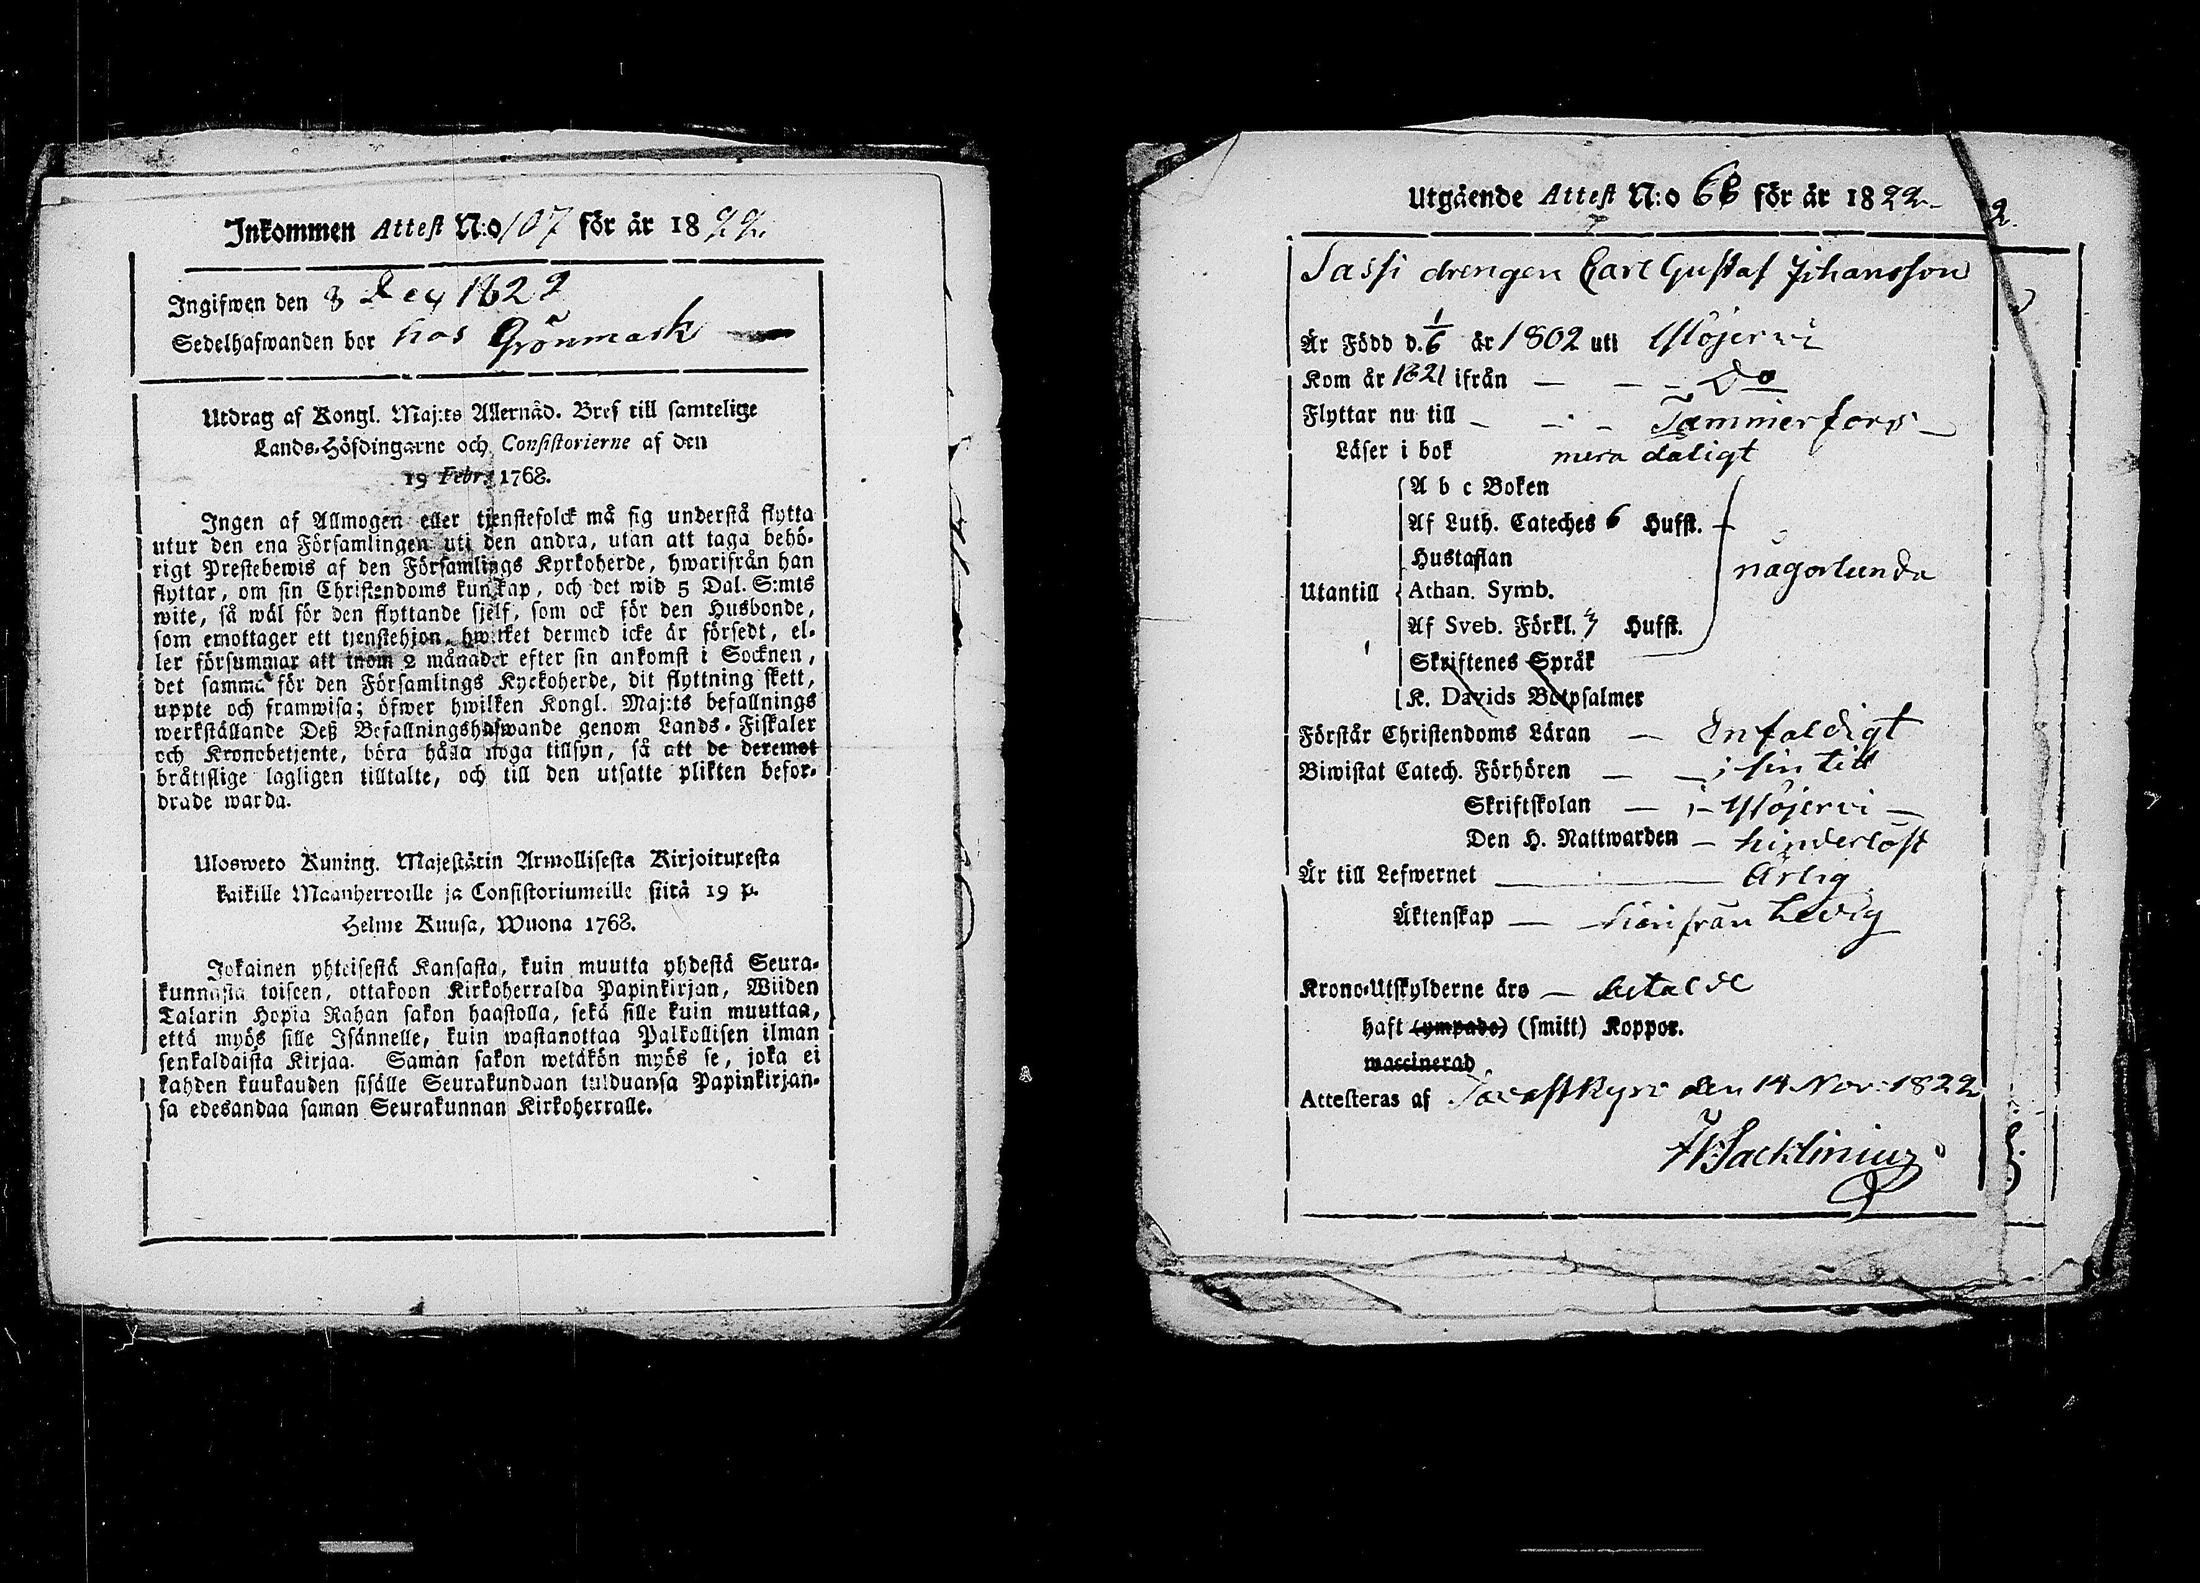 Inkommen Attest N:o 107 för år 1822.
Ingifwen den 8 Dec 1822
Sedelhafwanden bor hos Grönmark
Utdrag af Kongl. Maj:ts Allernåd. Bref till samtelige
Lands-Höfdingarne och Consistorierne af den
19 Febr. 1768.
Ingen af Allmogen eller tjenstefolck må sig understå flytta
utur den ena Församlingen uti den andra, utan att taga behö-
rigt Prestebewis af den Församlings Kyrkoherde, hwarifrån han
flyttar, om sin Christendoms kunskap, och det wid 5 Dal. S:mts
wite, så wäl för den flyttande sjelf, som ock för den Husbonde,
som emottager ett tjenstehjon, hwilket dermed icke är försedt, el-
ler försummar att inom 2 månader efter sin ankomst i Socknen,
det samma för den Församlings Kyrkoherde, dit flyttning skett,
uppte och framwisa; öfwer hwilken Kongl. Maj:ts befallnings
werkställande Deß Befallningshafwande genom Lands-Fiskaler
och Kronobetjente, böra hålla noga tillsyn, så att de deremot
bråttslige lagligen tilltalte, och till den utsatte plikten befor-
drade warda.
Ulosweto Kuning. Majestätin Armollisesta Kirjoituxesta
kaikille Maanherroille ja Consistoriumeille siitä 19 p.
Helme Kuusa, Wuona 1768.
Jokainen yhteisestä Kansasta, kuin muutta yhdestä Seura-
kunnasta toiseen, ottakoon Kirkoherralda Papinkirjan, Wiiden
Talarin Hopia Rahan sakon haastolla, sekä sille kuin muuttaa,
että myös sille Isännelle, kuin wastanottaa Palkollisen ilman
senkaldaista Kirjaa. Saman sakon wetäkön myös se, joka ei
kahden kuukauden sisälle Seurakundaan tulduansa Papinkirjan-
sa edesandaa saman Seurakunnan Kirkoherralle.
Utgående Attest N:o 66 för år 1822
2.
Sassi drengen Carl Gustaf Johansson
Är Född d. 1/6 år 1802 uti Ylöjerwi
Kom år 1821 ifrån — — - Do
Flyttar nu till - - - Tammerfors -
Läser i bok mera dåligt
A b c Boken
Af Luth. Cateches 6 Hufst.
Hustaflan
någorlunda
Utantill Athan. Symb.
Af Sveb. Förkl. 3 Hufst.
Skriftenes Språk
K. Davids Botpsalmer
Förstår Christendoms Läran — Enfaldigt
Biwistat Catech. Förhören — — i sin tid
Skriftskolan — i Ylöjerwi —
Den H. Nattwarden — hinderlöst
Är till Lefwernet — Ärlig
Äktenskap — härifrån Ledig
Krono-Utskylderne äro — betalde
haft (ympade) (smitt) Koppor.
waccinerad
Attesteras af Tavastkyro den 14 Nov. 1822